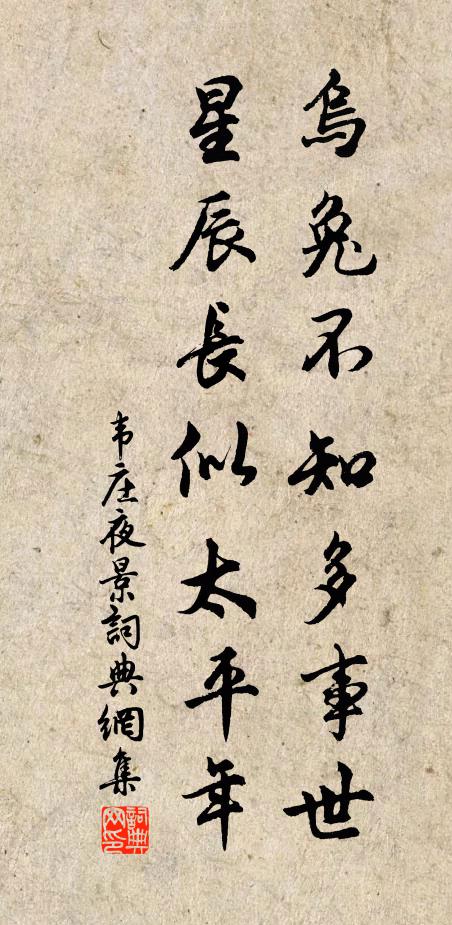 烏兔不知多事世
星辰長似太平年
韦庄夜景詞典網集
詞典网印